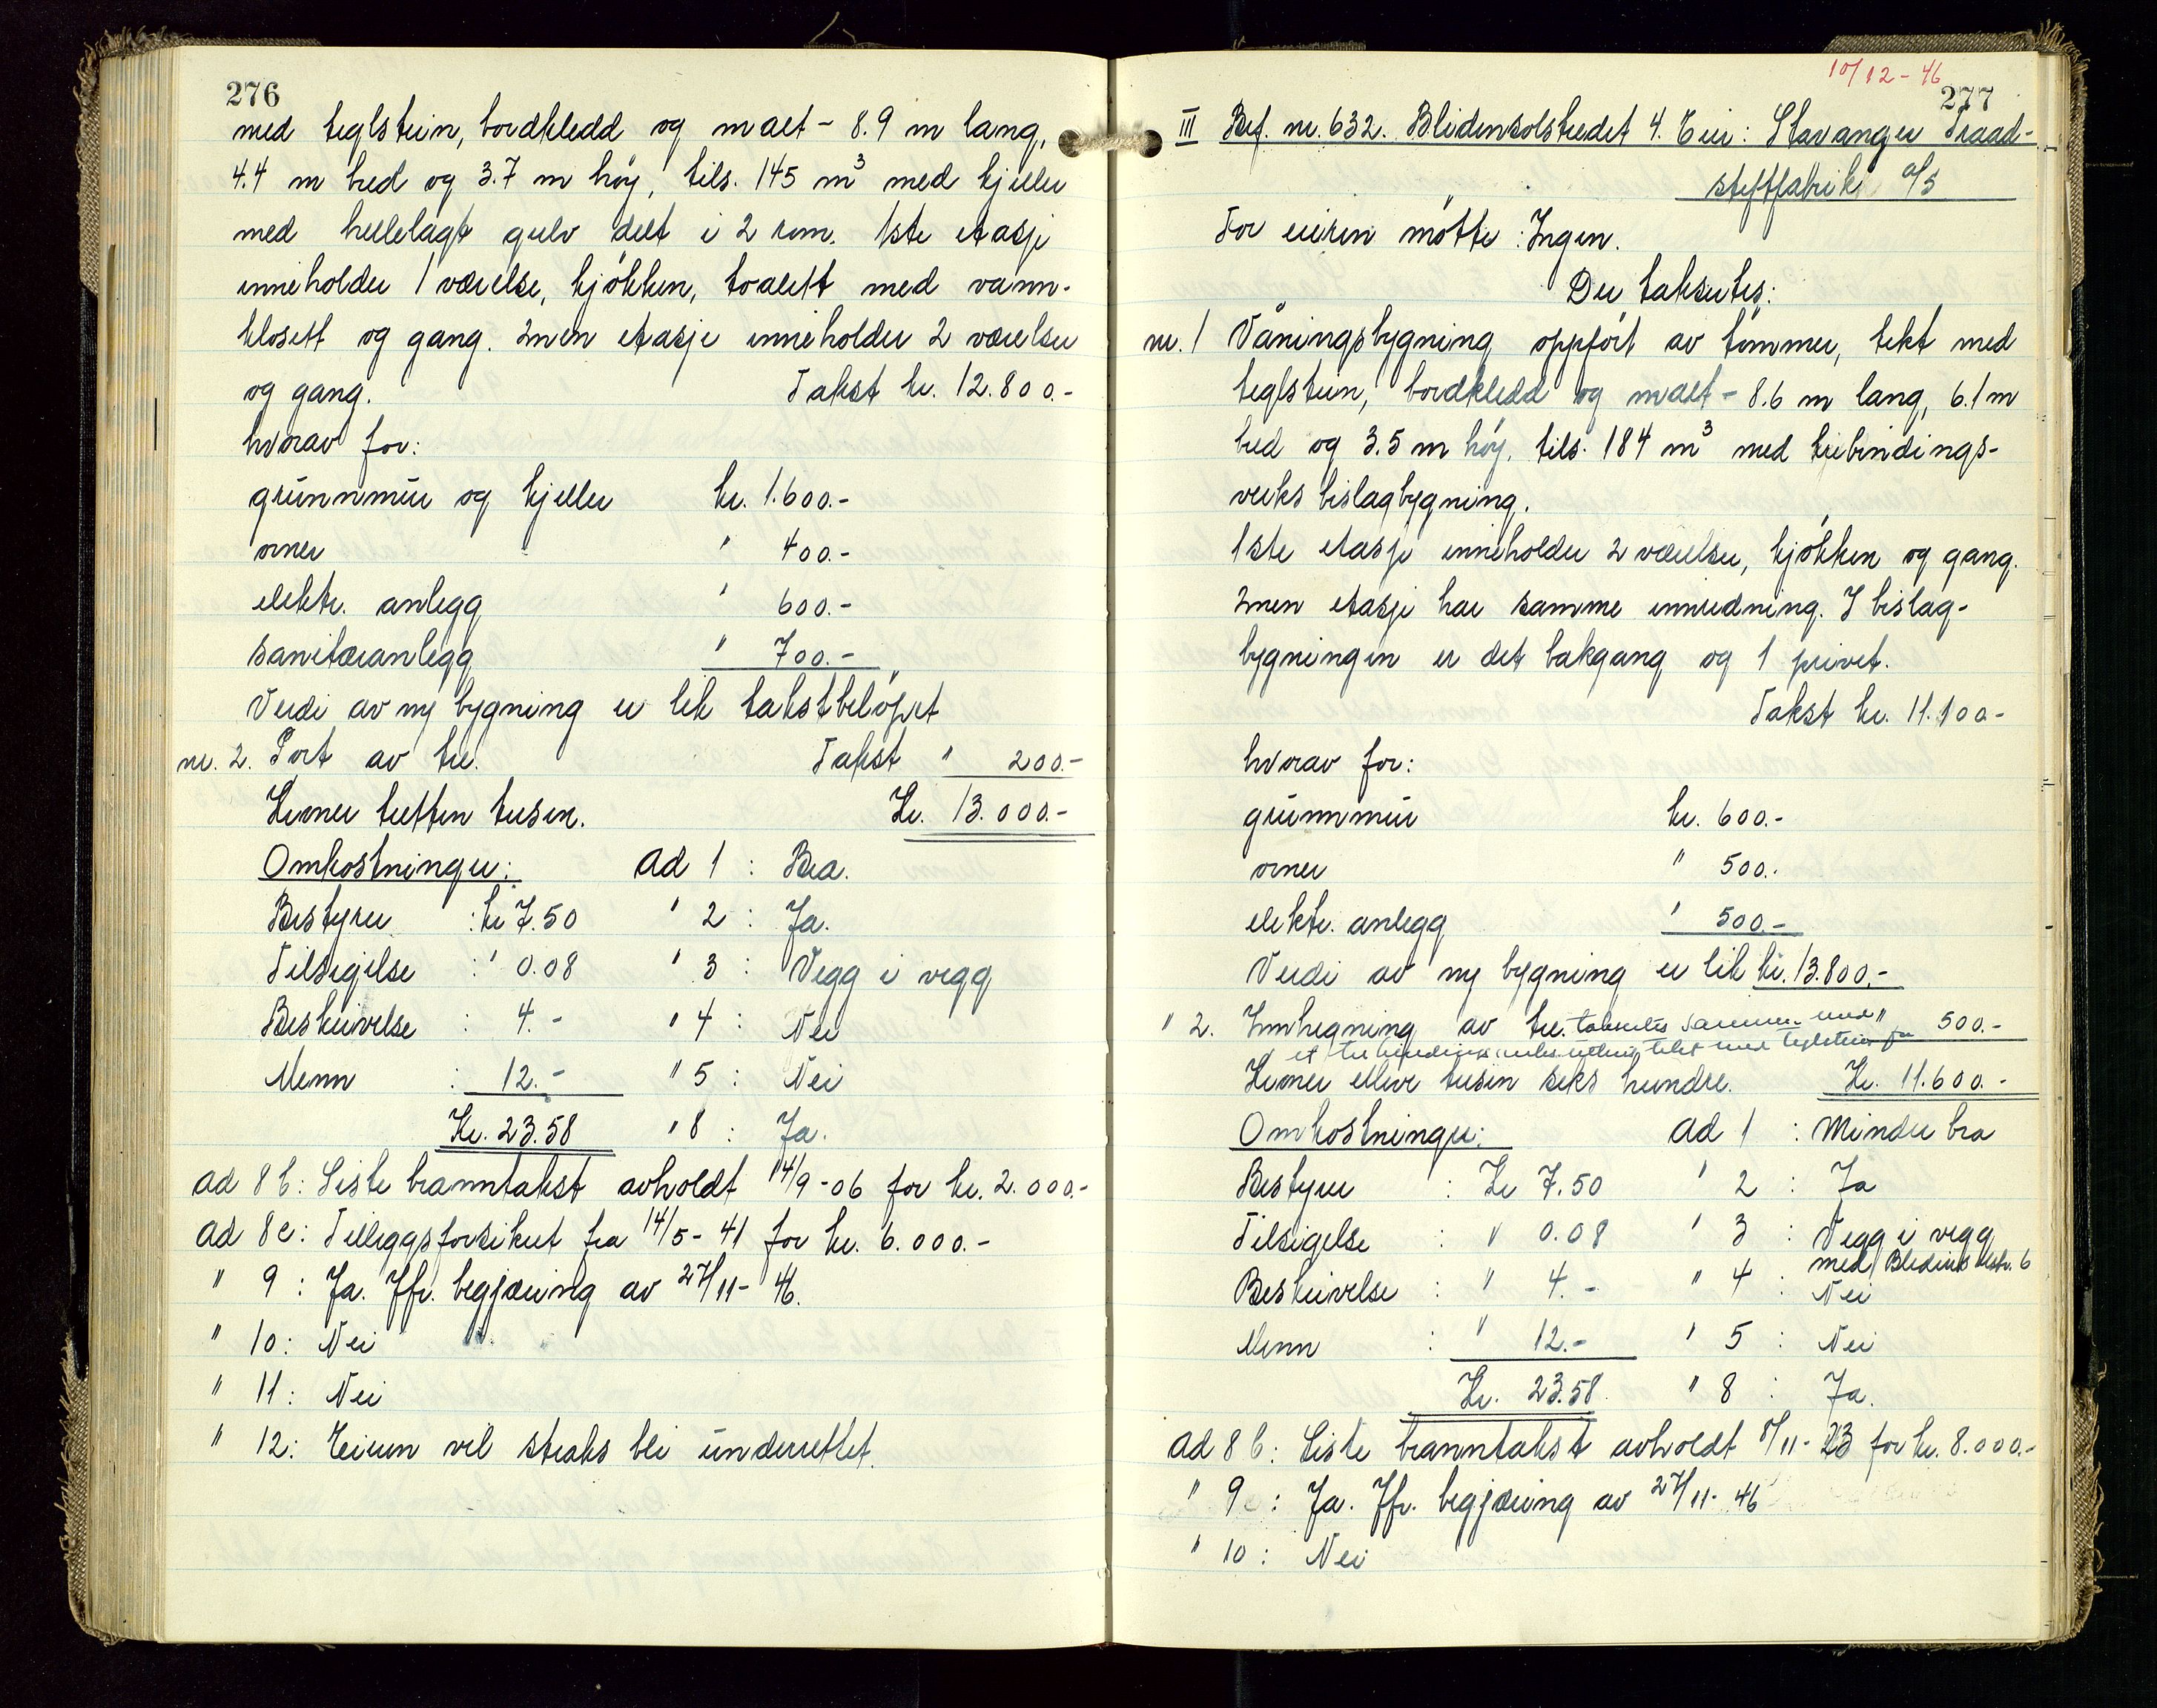 276
med teglstein, bordkledd og malt - 8.9 m lang,
4.4 m bred og 3.7 m høy, tils. 145 m³ med kjeller
med hellelagt gulv delt i 2 rom. 1ste etasje
inneholder 1 værelse, kjökken, toalett med vann-
klosett og gang. 2nen etasje inneholder 2 værelser
og gang. Takst kr. 12.800.-
hvorav for:
grunnmur og kjeller kr. 1.600.-
ovner " 400.-
elektr. anlegg " 600.-
sanitæranlegg " 700.-
Verdi av ny bygning er lik takstbelöpet
nr. 2. Port av tre. Takst " 200.-
Kroner tretten tusen. Kr. 13.000.-
Omkostninger: ad 1 : Bra.
Bestyrer : kr 7.50 " 2 : Ja.
Tilsigelse : " 0.08 " 3 : Vegg i vegg
Beskrivelse : 4.- " 4 : Nei
Menn : 12.- " 5 : Nei
Kr. 23.58 " 8 : Ja.
ad 8 b: Siste branntakst avholdt 14/9-06 for kr. 2.000.-
ad 8c: Tilleggsforsikret fra 14/5-41 for kr. 6.000.-
" 9 : Ja. Jfr. begjæring av 27/11-46.
" 10: Nei
" 11: Nei
" 12: Eieren vil straks bli underrettet.
10/12-46
277
III Brf. nr. 632. Blidensolstredet 4. Eier: Stavanger Traad-
stiftfabrik a/s
For eieren mötte: Ingen.
Der takseres:
nr. 1 Våningsbygning oppfört av tömmer, tekt med
teglstein, bordkledd og malt - 8.6 m lang, 6.1 m
bred og 3.5 m høy, tils. 184 m³ med trebindings-
verks bislagbygning.
1ste etasje inneholder 2 værelser, kjökken og gang.
2nen etasje har samme innredning. I bislag-
bygningen er det bakgang og 1 privet.
Takst kr. 11.100.-
hvorav for:
grunnmur kr. 600.-
ovner " 500.-
elektr. anlegg " 500.-
Verdi av ny bygning er lik kr. 13.800.-
" 2. Innhegning av tre. takseres sammen med " 500.-
et trebindingsverks uthus tekt med teglstein for
Kroner elleve tusen seks hundre. Kr. 11.600.-
Omkostninger: ad 1 : Mindre bra
Bestyrer : Kr 7.50 " 2 : Ja
Tilsigelse : " 0.08 " 3 : Vegg i vegg
med Blidens.str. 6
Beskrivelse : " 4.- " 4 : Nei
Menn : " 12.- " 5 : Nei
Kr. 23.58. " 8 : Ja.
ad 8 b: Siste branntakst avholdt 8/11-23 for kr. 8.000.-
" 9 : Ja. Jfr. begjæring av 27/11-46
" 10 : Nei